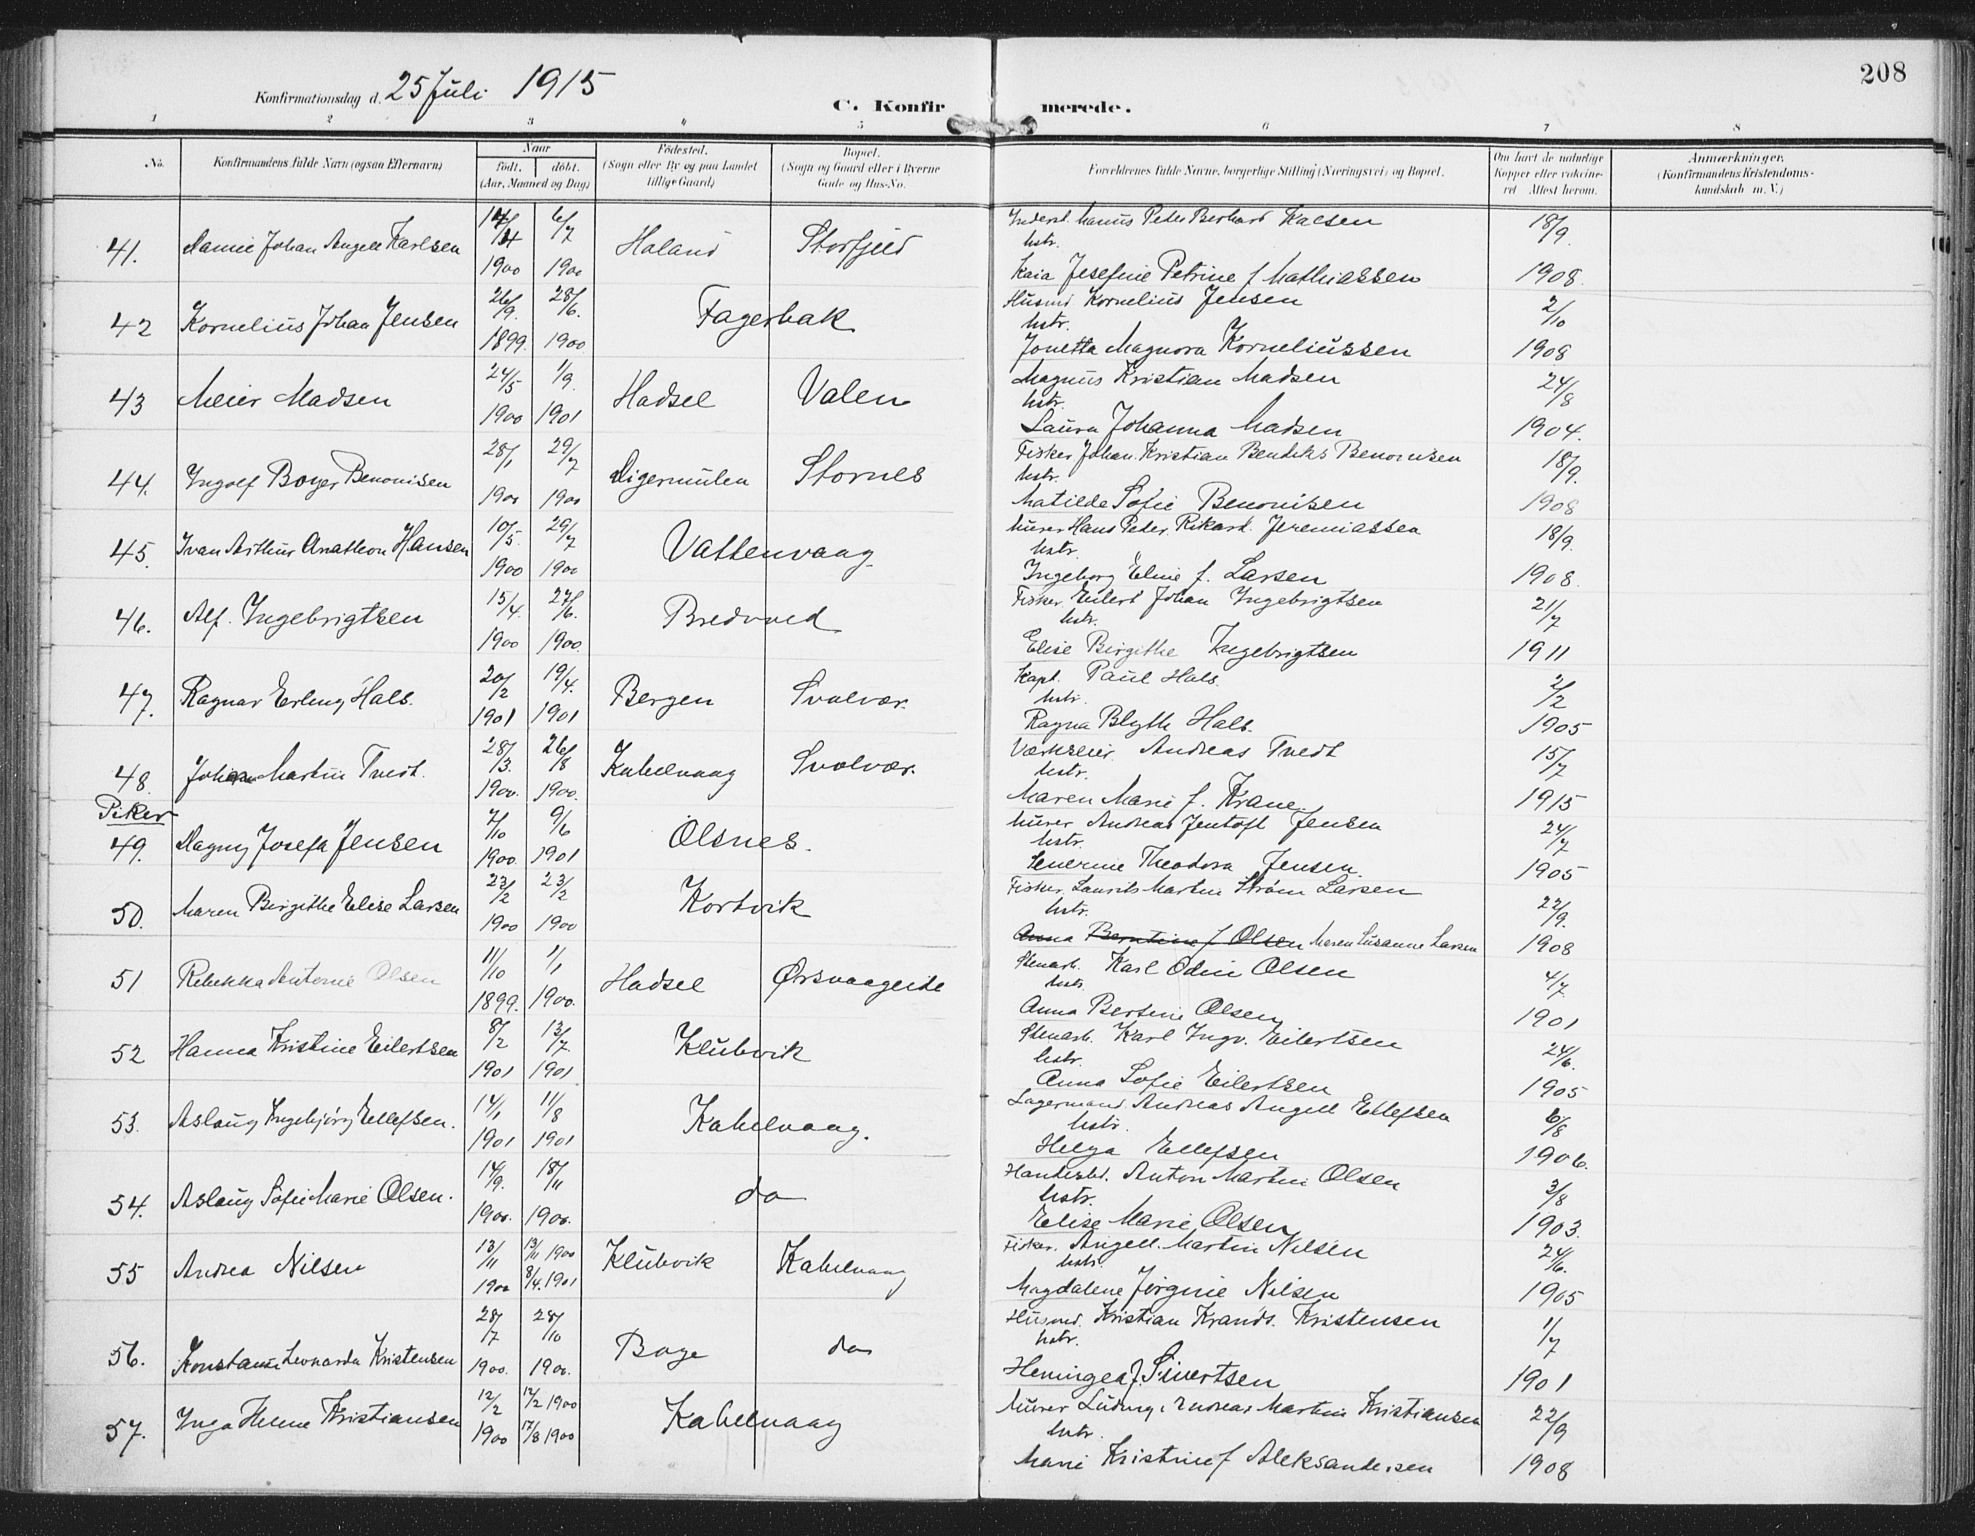 208
Konfirmationsdag d. 25 Juli 1915
C. Konfirmerede.
1 2 3 4 5 6 7 8
No. Konfirmandens fulde Navn (ogsaa Efternavn) Naar født. døbt. (Aar, Maaned og Dag) Fødested. (Sogn eller By og paa Landet tillige Gaard) Bopæl. (Sogn og Gaard eller i Byerne Gade og Hus-No. Forældrenes fulde Navne, borgerlige Stilling (Næringsvei) og Bopæl. Om havt de naturlige Kopper eller vakcineret Attest herom. Anmærkninger. (Konfirmandens Kristendomskundskab m. V.)
41. Johan Angell Karlsen 6/7 Holand Storfjord Peter Berhard 18/9
1900 1900 hstr. Kaia Josefine Petrine f. Mathiassen 1908.
42 Kornelius Johan Jensen 26/9. 28/6. Fagerbak Husmd Kornelius Jensen 2/10
1899. 1900 hstr. Jonetta Magnora Korneliussen 1908
43 Meier Madsen 24/5 1/9. Hadsel Valen Magnus Kristian Madsen 24/8
1900 1901 hstr. Laura Johanna Madsen 1904.
44. Ingolf Boyer Benonisen 28/1 29/7 Digermulen Stornes Fisker Johan Kristian Bendiks Benonisen 18/9.
1900 1900 hstr. Matilde Sofie Benonisen 1908
45. Ivan Arthur Anathon Hansen 10/5. 29/7 Vattenvaag Murer Hans Peter Rikard Jeremiassen 18/9.
1900 1900 hstr. Ingeborg Eline f. Larsen 1908.
46. Alf. Ingebrigtsen 15/4. 27/6. Bredvved Fisker Eilert Johan Ingebrigtsen 21/7
1900 1900. hstr. Elise Birgithe Ingebrigtsen 1911
47. Ragnar Erling Hals. 20/2 19/4. Bergen Svolvær. Kapt. Paul Hals. 2/2
1901 1901 hstr. Ragna Blyth Hals. 1905
48. Johan Martin Tvedt. 28/3. 26/8 Kabelvaag Svolvær. Værkseier Andreas Tvedt 15/7
1900. 1900. hstr. Maren Marie f. Krane. 1915
Piker
49. Magny Josefa Jensen 7/10 9/6 Olsnes. Murer Andreas Jentoft Jensen 24/7
1900. 1901 hstr. Severine Theodora Jensen. 1905
50. Maren Birgithe Elise Larsen 23/2 Kortvik Fisker. Laurits Martin Strøm Larsen 22/9.
1900 1900 hstr. Anna Berntine f Olsen Maren Susanne Larsen 1908
51 Rebekka Antonie Olsen 11/10 1/1 Hadsel Ørsvaageide Stenarb. Karl Odin Olsen 4/7
1899. 1900. hstr. Anna Bertine Olsen 1901
52 Hanna Kristine Eilertsen 8/2 13/7. Klubvik Stenarb. Karl Ingv. Eilertsen 24/6.
1901 1901 hstr. Anna Sofie Eilertsen 1905
53. Aslaug Ingebjørg Ellefsen. 14/1 11/8 Kabelvaag. Lagermand Andreas Angell Ellefsen 6/8
1901 1901 hstr. Helga Ellefsen 1906.
54. Aslaug Sofie Marie Olsen. 14/9. 18/11 do Anton Martin Olsen 3/8
1900. 1900. hstr. Elise Marie Olsen 1903.
55 Andrea Nilsen 13/11 13/11 1900 Klubvik Kabelvaag Fisker. Angell Martin Nilsen 24/6.
1900 8/4. 1901 hstr. Magdalene Jørgine Nilsen 1905
56. Leonarda Kristensen 28/7 28/10 Boge do Husmd. Kristian Krands. Kristensen 1/7
1900. 1900. hstr. Hemingea f. Sivertsen 1901
57. Inga Helene Kristiansen 12/2 12/2 1900 Kabelvaag Murer Ludvig Andreas Martin Kristiansen 22/9
1900 17/8 1900 hstr. Marie Kristine f Aleksandersen 1908